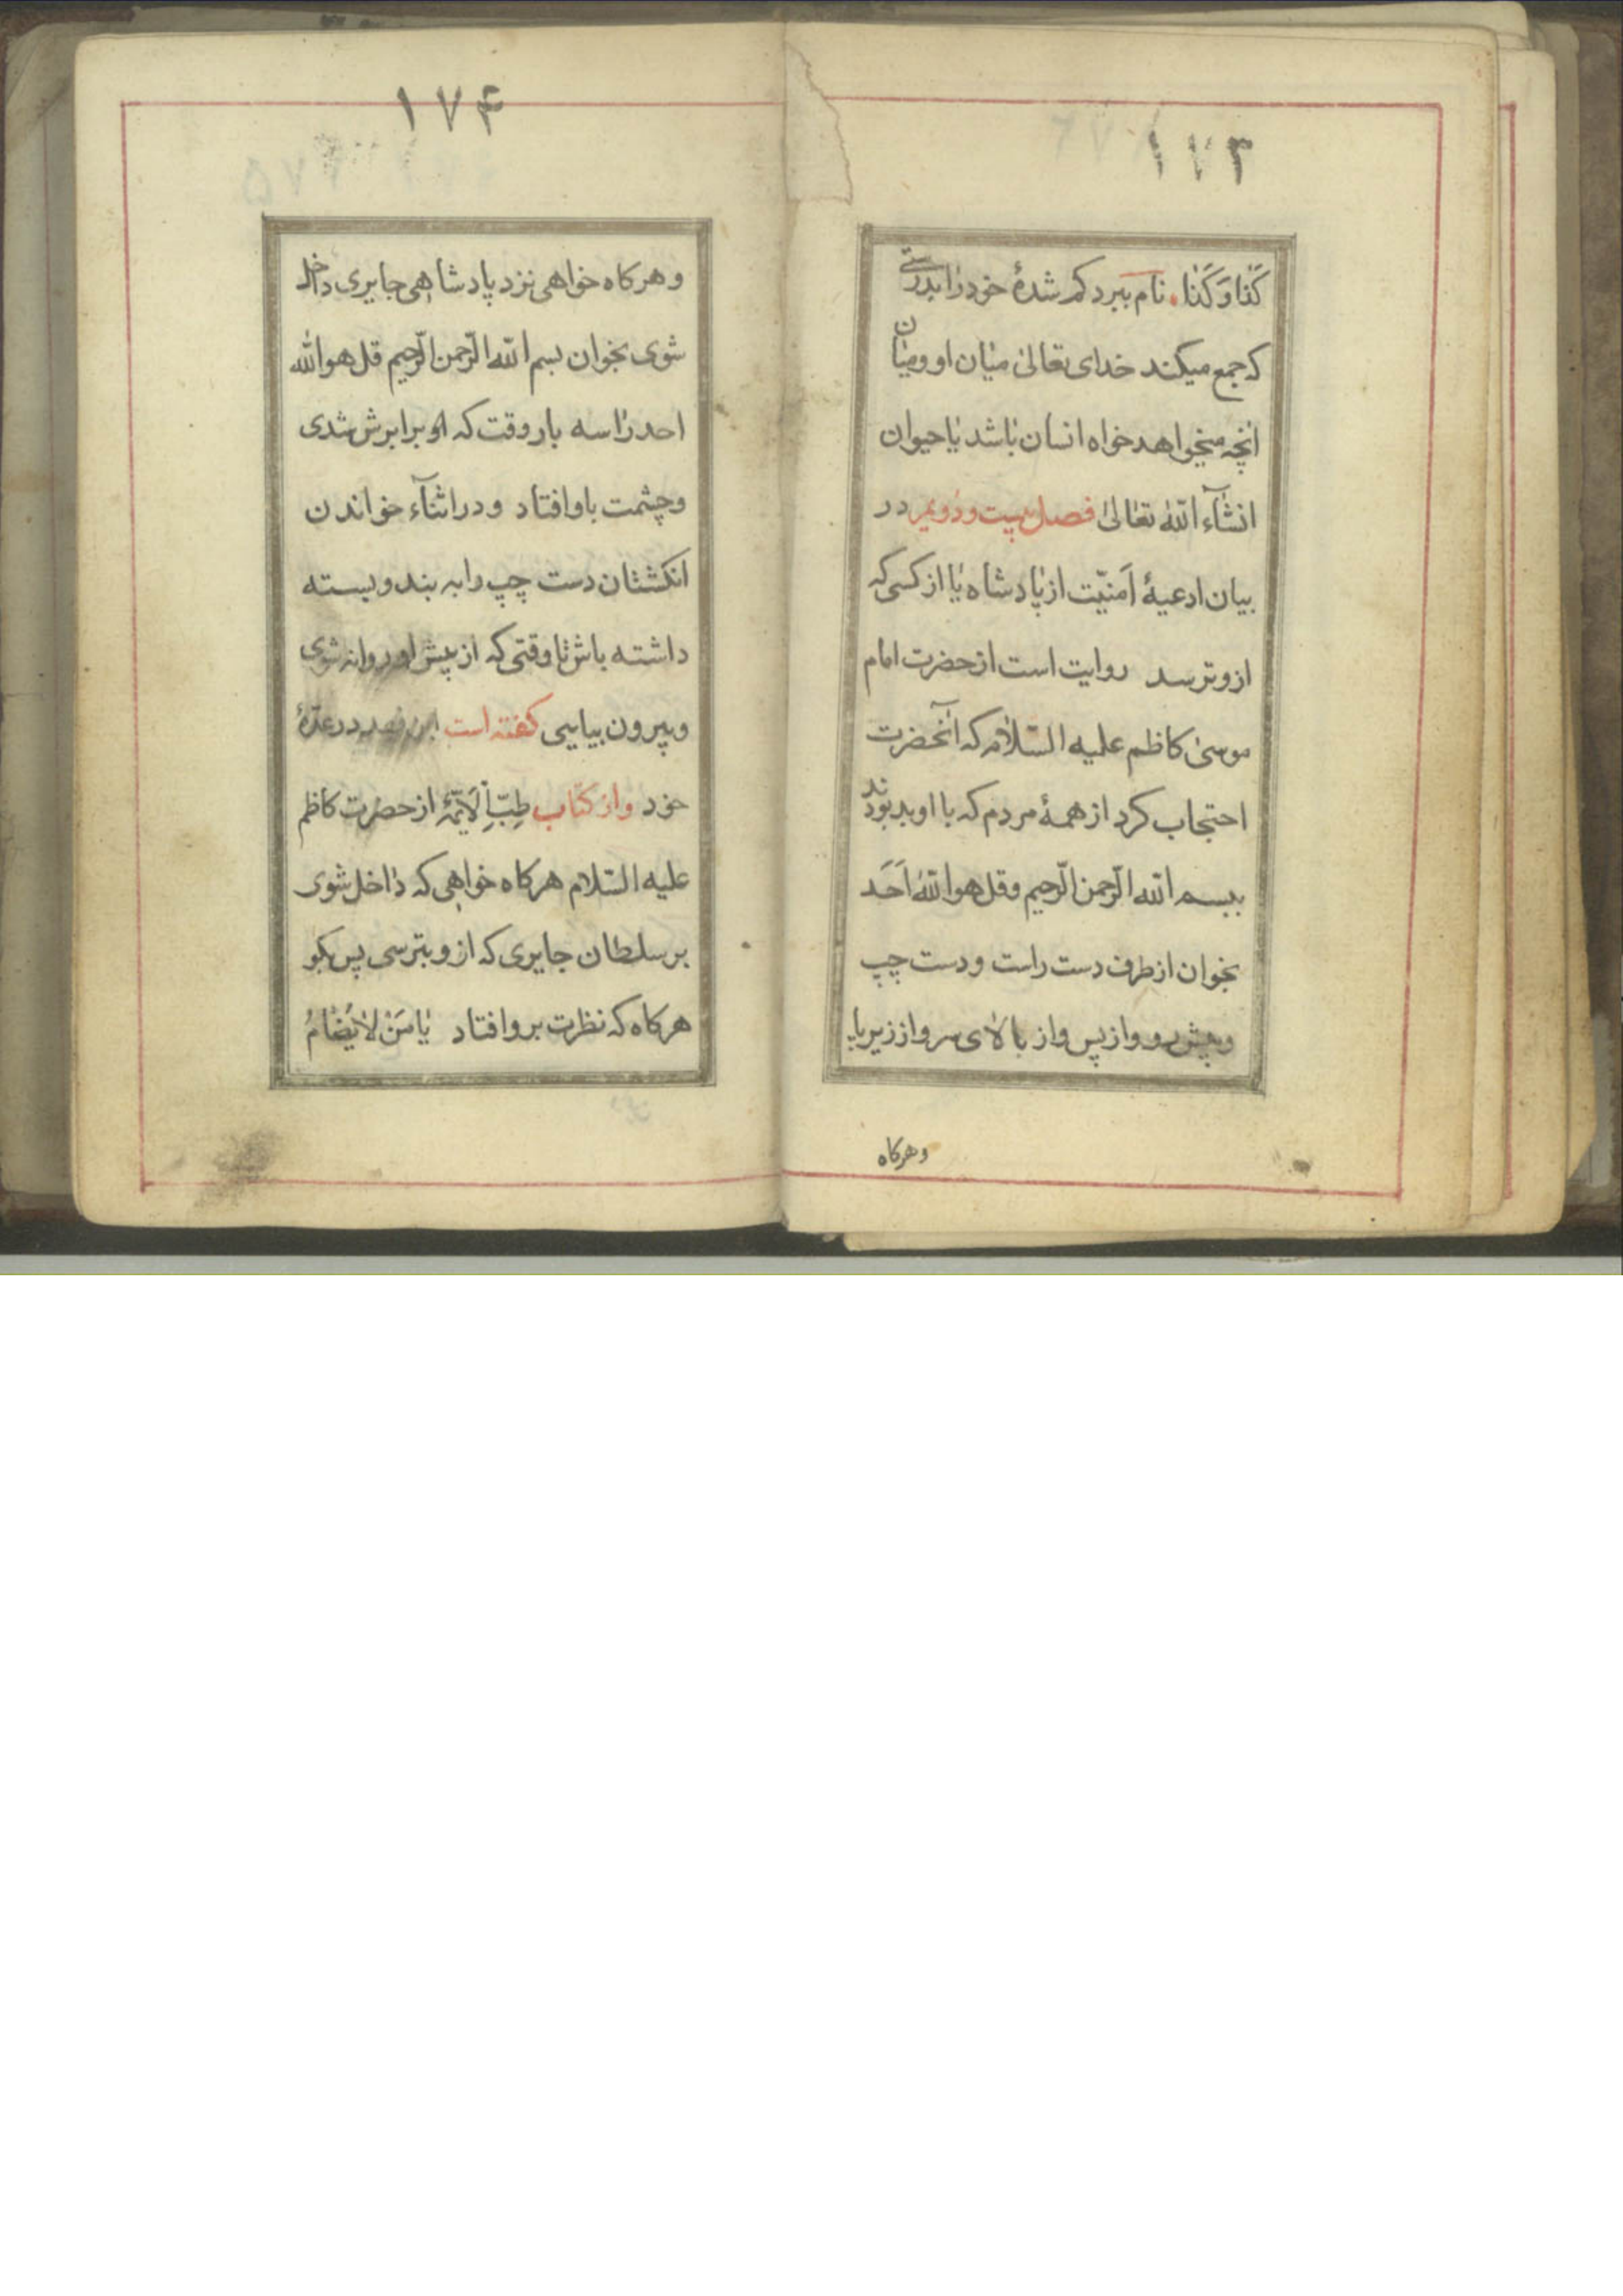 ۱۷۳
كَذٰا وَ كَذٰا. نام ببرد كم شدهٔ خود رٰا بدرستے
كه جمع ميكند خداى تعالىٰ ميٰان او و ميٰان
انچه ميخواهد خواه انسان بٰاشد يٰا حيوان
انشٰآء اللّهُ تعٰالىٰ فصل بيست و دويم در
بيان ادعيهٔ اَمنيّت از پٰادشاه يٰا از كسى كه
ازو ترسد روايت است از حضرت امام
موسىٰ كاظم عليه السّلام كه آنحضرت
احتجاب كرد از همهٔ مردم كه با او بد بودند
ببسم اللّه الرّحمن الرّحيم و قل هو اللّهُ اَحَد
بخوان از طرف دست راست و دست چپ
و پيش رو و از پس و از بالاى سر و از زير پا
و هركاه
۱۷۴
و هركاه خواهى نزد پادشاهى جايرى داخل
شوى بخوان بسم اللّه الرّحمن الرّحيم قل هو اللّه
احد رٰا سه بار وقت كه او برابرش شدى
و چشمت باو افتاد و در اثنآء خواندن
انكشتان دست چپ را به بند و بسته
داشته باش تٰا وقتى كه از پيش او روانه شوى
و بيرون بيايى كفته است ابن فهد در عدّهٔ
خود و از كتاب طِبّ اَلْاَئِمّهٔ از حضرت كاظم
عليه السّلام هركاه خواهى كه دٰاخل شوى
بر سلطان جايرى كه ازو بترسى پس بكو
هركاه كه نظرت برو افتاد يٰا مَنْ لٰا يُضٰامُ